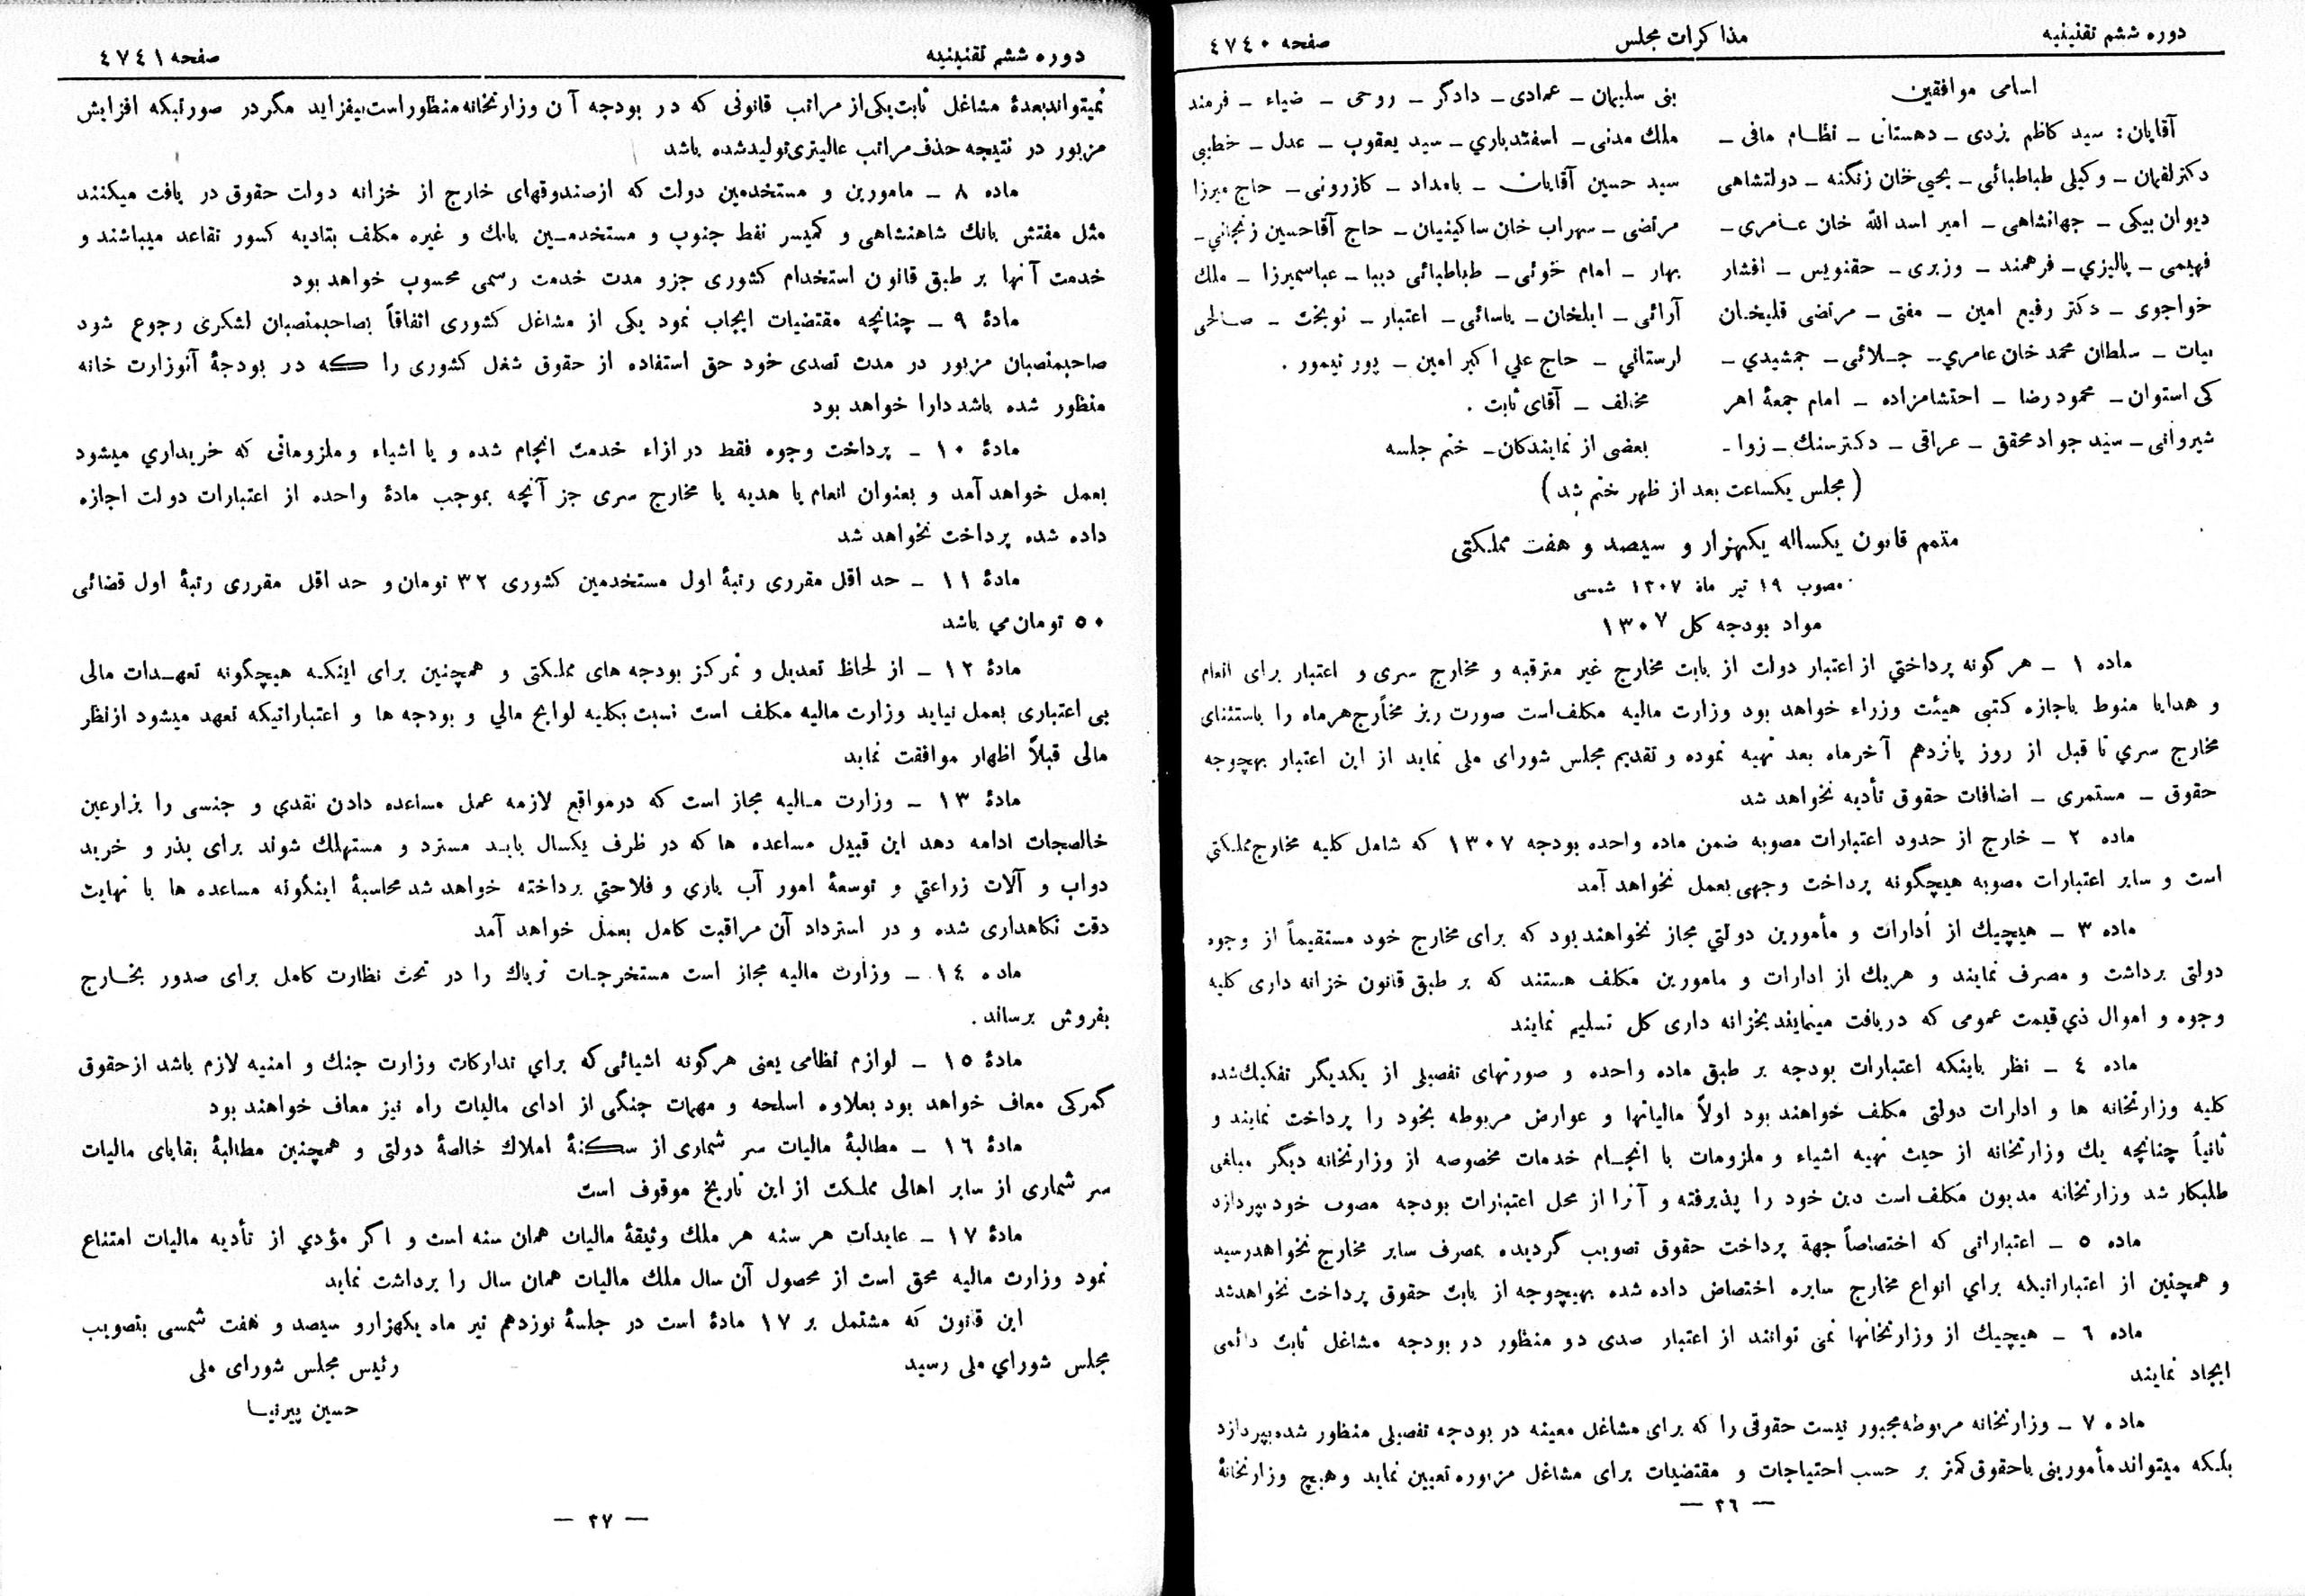 دوره ششم تقنینیه
مذاکرات مجلس
صفحه ٤٧٤٠
اسامی موافقین
آقایان: سید کاظم یزدی ـ دهستانی ـ نظام مافی ـ
دکتر لقمان ـ وکیلی طباطبائی ـ یحیی خان زنگنه ـ دولتشاهی
دیوان بیکی ـ جهانشاهی ـ امیر اسد الله خان عامری ـ
فهیمی ـ پالیزي ـ فرهمند ـ وزیری ـ حقنویس ـ افشار
خواجوی ـ دکتر رفیع امین ـ مفتی ـ مرتضی قلیخان
بیات ـ سلطان محمد خان عامري ـ جلائی ـ جمشیدي ـ
کی استوان ـ محمود رضا ـ احتشامزاده ـ امام جمعهٔ اهر
شیروانی ـ سید جواد محقق ـ عراقی ـ دکتر سنك ـ زوا ـ
بنی سلیمان ـ عمادی ـ دادگر ـ روحی ـ ضیاء ـ فرمند
ملك مدنی ـ اسفندیاري ـ سید یعقوب ـ عدل ـ خطیبی
سید حسین آقایان ـ بامداد ـ کازرونی ـ حاج میرزا
مرتضی ـ سهراب خان ساکینیان ـ حاج آقا حسین زنجاني ـ
بهار ـ امام خوئی ـ طباطبائی دیبا ـ عباسمیرزا ـ ملك
آرائی ـ ایلخان ـ یاسائی ـ اعتبار ـ نوبخت ـ صالحی
لرستاني ـ حاج علي اکبر امین ـ پور تیمور .
مخالف ـ آقای ثابت .
بعضی از نمایندکان ـ ختم جلسه
( مجلس یکساعت بعد از ظهر ختم شد )
متمم قانون یکساله یکهزار و سیصد و هفت مملکتی
مصوب ١٩ تیر ماه ١٣٠٧ شمسی
مواد بودجه کل ١٣٠٧
ماده ١ ـ هر گونه پرداختي از اعتبار دولت از بابت مخارج غیر مترقبه و مخارج سری و اعتبار برای انعام
و هدایا منوط باجازه کتبی هیئت وزراء خواهد بود وزارت مالیه مکلف است صورت ریز مخارج هر ماه را باستثنای
مخارج سري تا قبل از روز پانزدهم آخر ماه بعد تهیه نموده و تقدیم مجلس شورای ملی نماید از این اعتبار بهچوجه
حقوق ـ مستمری ـ اضافات حقوق تأدیه نخواهد شد
ماده ٢ ـ خارج از حدود اعتبارات مصوبه ضمن ماده واحده بودجه ١٣٠٧ که شامل کلیه مخارج مملکتي
است و سایر اعتبارات مصوبه هیچگونه پرداخت وجهی بعمل نخواهد آمد
ماده ٣ ـ هیچیك از ادارات و مأمورین دولتي مجاز نخواهند بود که برای مخارج خود مستقیماً از وجوه
دولتی برداشت و مصرف نمایند و هریك از ادارات و مامورین مکلف هستند که بر طبق قانون خزانه داری کلیه
وجوه و اموال ذي قیمت عمومی که دریافت مینمایند بخزانه داری کل تسلیم نمایند
ماده ٤ ـ نظر باینکه اعتبارات بودجه بر طبق ماده واحده و صورتهای تفصیلی از یکدیگر تفکیك شده
کلیه وزارتخانه ها و ادارات دولتی مکلف خواهند بود اولاً مالیاتها و عوارض مربوطه بخود را پرداخت نمایند و
ثانیاً چنانچه یك وزارتخانه از حیث تهیه اشیاء و ملزومات یا انجام خدمات مخصوصه از وزارتخانه دیگر مبلغی
طلبکار شد وزارتخانه مدیون مکلف است دین خود را پذیرفته و آنرا از محل اعتبارات بودجه مصوب خود بپردازد
ماده ٥ ـ اعتباراتی که اختصاصاً جهة پرداخت حقوق تصویب گردیده بمصرف سایر مخارج نخواهد رسید
و همچنین از اعتباراتیکه براي انواع مخارج سایره اختصاص داده شده بهیچوجه از بابت حقوق پرداخت نخواهد شد
ماده ٦ ـ هیچیك از وزارتخانها نمی توانند از اعتبار صدی دو منظور در بودجه مشاغل ثابت دائمی
ایجاد نمایند
ماده ٧ ـ وزارتخانه مربوطه مجبور نیست حقوقی را که برای مشاغل معینه در بودجه تفصیلی منظور شده بپردازد
بلکه میتواند مأمورینی باحقوق کمتر بر حسب احتیاجات و مقتضیات برای مشاغل مزبوره تعیین نماید و هیچ وزارتخانهٔ
— ٢٦ —
دوره ششم تقنینیه
صفحه ٤٧٤١
نمیتواند بعدهٔ مشاغل ثابت یکی از مراتب قانونی که در بودجه آن وزارتخانه منظور است بیفزاید مگر در صورتیکه افزایش
مزبور در نتیجه حذف مراتب عالیتری تولید شده باشد
ماده ٨ ـ مامورین و مستخدمین دولت که از صندوقهای خارج از خزانه دولت حقوق در یافت میکنند
مثل مفتش بانك شاهنشاهی و کمیسر نفط جنوب و مستخدمین بانك و غیره مکلف بتادیه کسور تقاعد میباشند و
خدمت آنها بر طبق قانون استخدام کشوری جزو مدت خدمت رسمی محسوب خواهد بود
مادهٔ ٩ ـ چنانچه مقتضیات ایجاب نمود یکی از مشاغل کشوری اتفاقاً بصاحبمنصبان لشکری رجوع شود
صاحبمنصبان مزبور در مدت تصدی خود حق استفاده از حقوق شغل کشوری را که در بودجهٔ آنوزارت خانه
منظور شده باشد دارا خواهد بود
مادهٔ ١٠ ـ پرداخت وجوه فقط در ازاء خدمت انجام شده و یا اشیاء و ملزوماتی که خریداري میشود
بعمل خواهد آمد و بعنوان انعام یا هدیه یا مخارج سری جز آنچه بموجب مادهٔ واحده از اعتبارات دولت اجازه
داده شده پرداخت نخواهد شد
مادهٔ ١١ ـ حد اقل مقرری رتبهٔ اول مستخدمین کشوری ٣٢ تومان و حد اقل مقرری رتبهٔ اول قضائی
٥٠ تومان مي باشد
مادهٔ ١٢ ـ از لحاظ تعدیل و تمرکز بودجه های مملکتی و همچنین برای اینکه هیچگونه تعهدات مالی
بی اعتباری بعمل نیاید وزارت مالیه مکلف است نسبت بکلیه لوایح مالي و بودجه ها و اعتباراتیکه تعهد میشود از نظر
مالی قبلاً اظهار موافقت نماید
مادهٔ ١٣ ـ وزارت مالیه مجاز است که در مواقع لازمه عمل مساعده دادن نقدي و جنسی را بزارعین
خالصجات ادامه دهد این قبیل مساعده ها که در ظرف یکسال باید مسترد و مستهلك شوند برای بذر و خرید
دواب و آلات زراعتي و توسعهٔ امور آب یاری و فلاحتي برداخته خواهد شد محاسبهٔ اینگونه مساعده ها با نهایت
دقت نکاهداری شده و در استرداد آن مراقبت کامل بعمل خواهد آمد
ماده ١٤ ـ وزارت مالیه مجاز است مستخرجات تریاك را در تحت نظارت کامل برای صدور بخارج
بفروش برساند .
مادهٔ ١٥ ـ لوازم نظامی یعنی هر گونه اشیائی که براي تدارکات وزارت جنك و امنیه لازم باشد از حقوق
گمرکی معاف خواهد بود بعلاوه اسلحه و مهمات جنگی از ادای مالیات راه نیز معاف خواهند بود
مادهٔ ١٦ ـ مطالبهٔ مالیات سر شماری از سکنهٔ املاك خالصهٔ دولتی و همچنین مطالبهٔ بقایای مالیات
سر شماری از سایر اهالی مملکت از این تاریخ موقوف است
مادهٔ ١٧ ـ عایدات هر سنه هر ملك وثیقهٔ مالیات همان سنه است و اکر مؤدي از تأدیه مالیات امتناع
نمود وزارت مالیه محق است از محصول آن سال ملك مالیات همان سال را برداشت نماید
این قانون که مشتمل بر ١٧ مادهٔ است در جلسهٔ نوزدهم تیر ماه یکهزارو سیصد و هفت شمسی بتصویب
مجلس شوراي ملی رسید
رئیس مجلس شورای ملی
حسین پیرنیا
— ٢٧ —